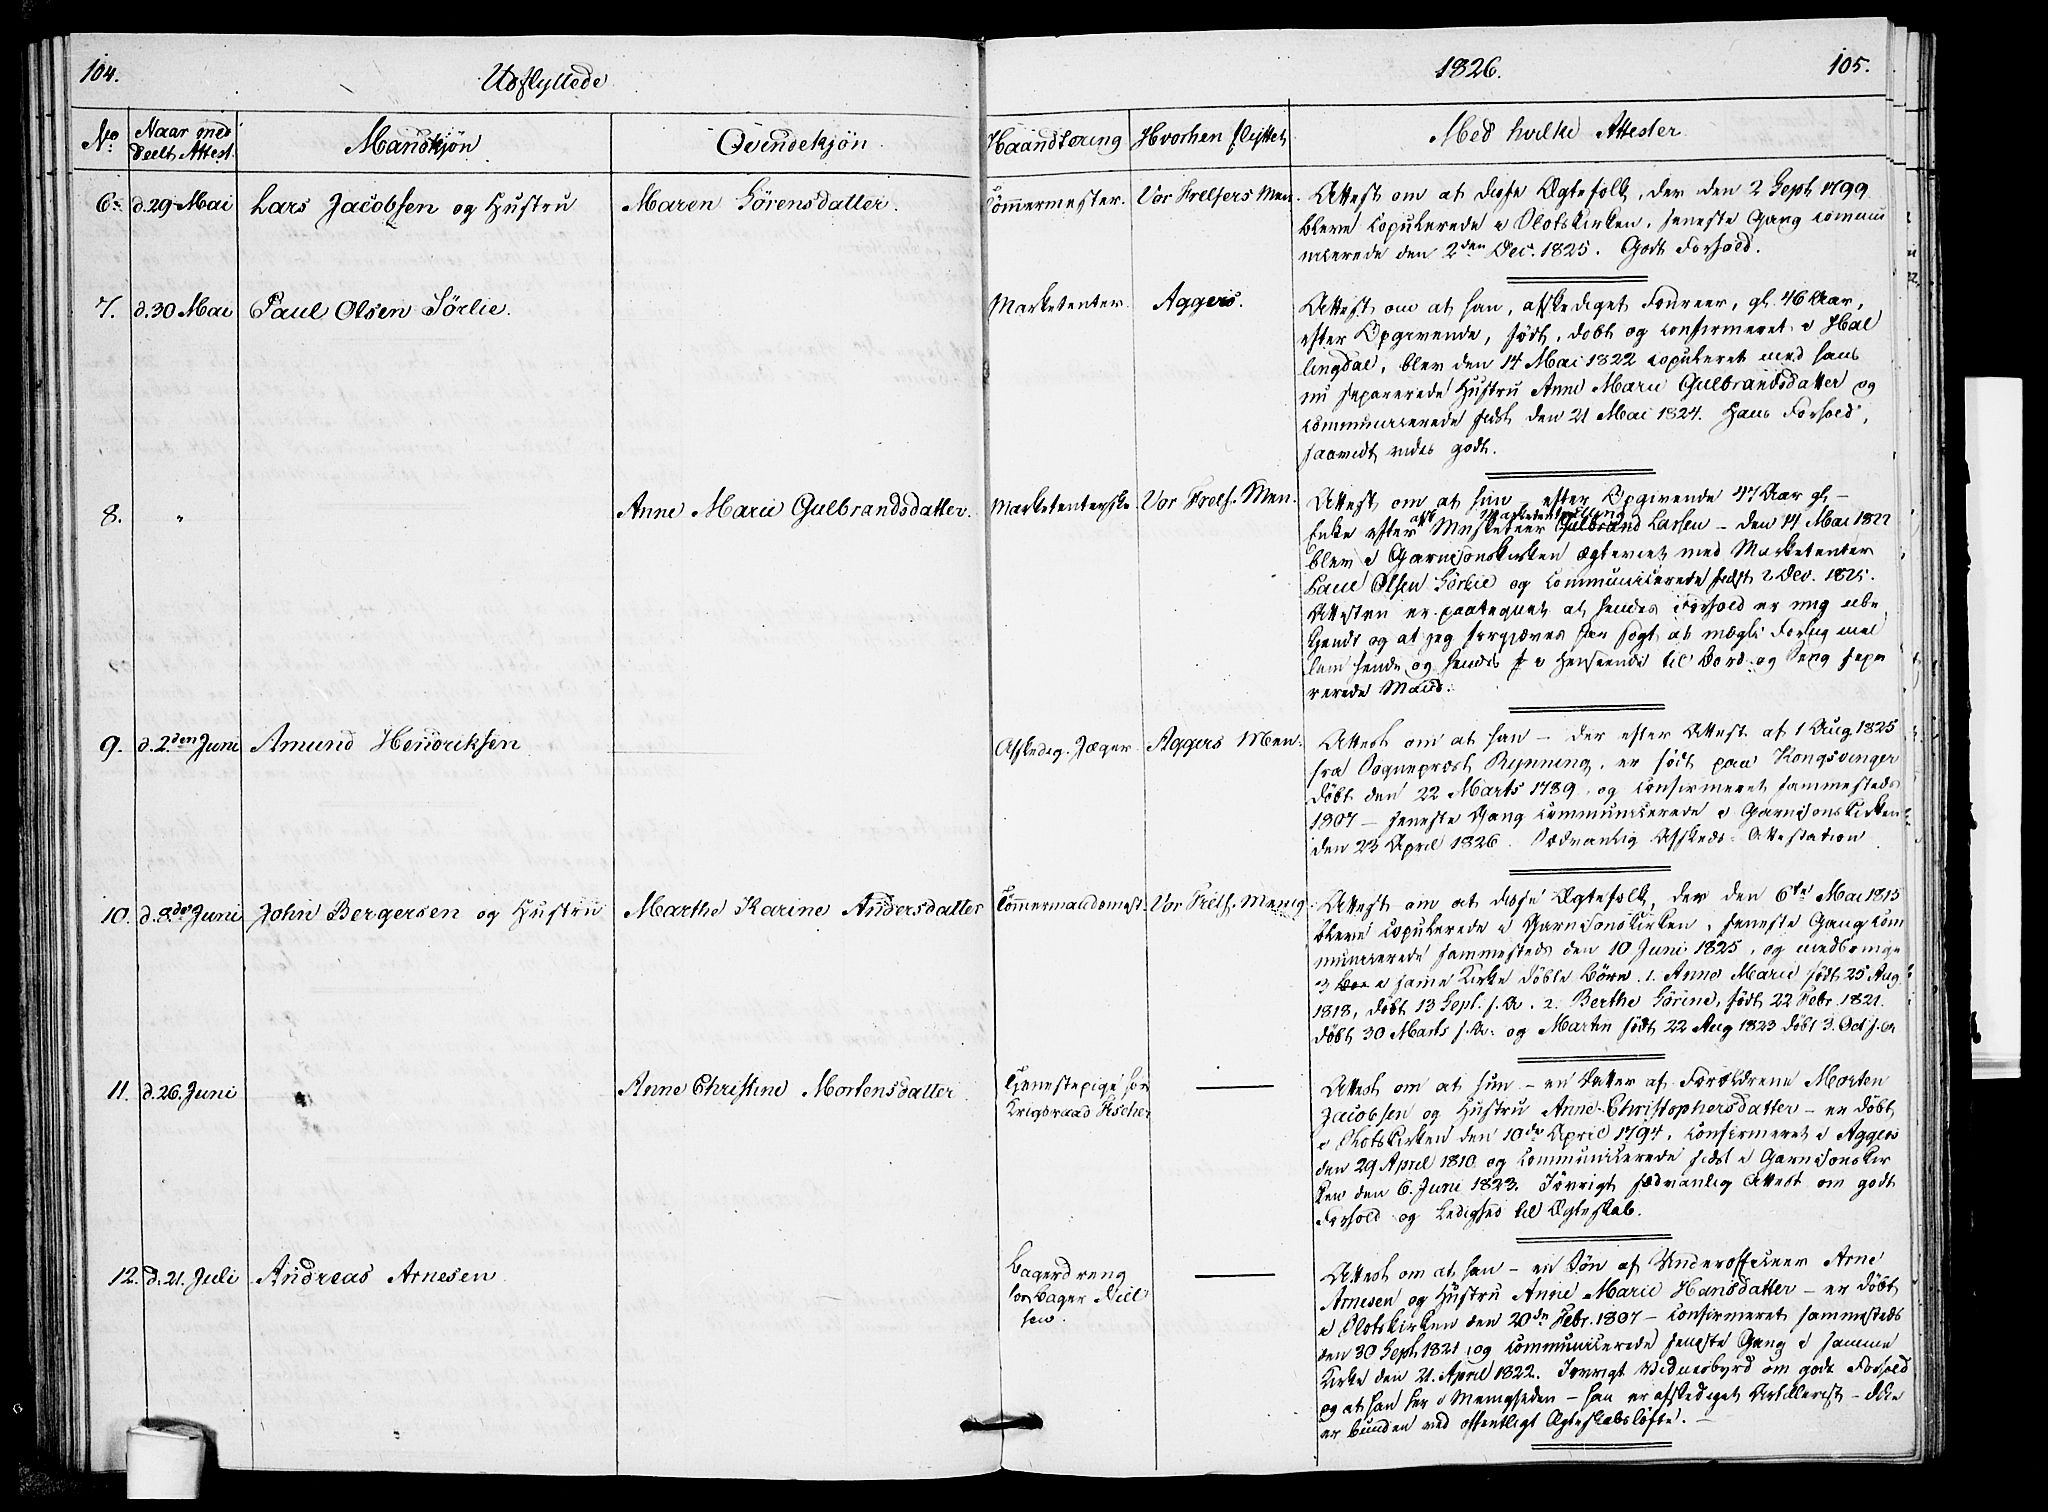 104.
Udflyttede
1826.
105.
No
Naar med
deelt Attest.
Mandkjön
Qvindekjön.
Haandtering
Hvorhen flyttet
Med hvilke Attester
6.
d. 29 Mai
Lars Jacobsen og Hustru
Maren Sörensdatter.
Tömmermester.
Vor Frelsers Men.
Attest om at disse Ægtefolk, der den 2 Sept 1799
bleve copulerede i Slotskirken, seneste Gang commu
nicerede den 2den Dec. 1825. Godt Forhold.
7.
d. 30 Mai
Paul Olsen Sörlie.
Marketenter
Aggers.
Attest om at han, afskediget Foureer, gl. 46 Aar,
efter Opgivende, født, døbt og confirmeret i Hal
lingdal, blev den 14 Mai 1822 copuleret med hans
nu separerede Hustru Anne Marie Gulbrandsdatter og
communicerede sidst den 21 Mai 1824. Hans Forhold,
saavidt vides godt.
8.
"
Anne Marie Gulbrandsdatter.
Marketenterske
Vor Frels. Men.
Attest om at hun - efter Opgivende 47 Aar gl -
Enke efter afsk Musketeer Gulbrand Larsen - den 14 Mai 1822
blev i Garnisonskirken ægteviet med Marketenter
Paul Olsen Sörlie og communicerede sidst 2 Dec. 1825.
Attesten er paategnet at hendes Forhold er mig ube
kjendt og at jeg forgjæves har søgt at mægle Forlig mel
lem hende og hendes i Henseende til Bord og Seng sepa
rerede Mand.
9.
d. 2den Juni
Amund Hendriksen
Afskedig. Jæger
Aggers Men.
Attest om at han - der efter Attest af 1 Aug 1825
fra Sognepræst Rynning, er født paa Kongsvinger
döbt den 22 Marts 1789, og confirmeret sammesteds
1807 - seneste Gang communicerede i Garnisonskirken
den 23 April 1826. Sædvanlig Afskeds-Attestation
10.
d. 8de Juni
John Bergersen og Hustru
Marthe Karine Andersdatter
Tömmermandsmest.
Vor Frels. Menig.
Attest om at disse Ægtefolk, der den 6te Mai 1815
bleve copulerede i Garnisonskirken, seneste Gang com
municerede sammesteds den 10 Juni 1825, og medbringe
3 i samme Kirke döbte Börn. 1. Anne Marie født 25 Aug
1818, døbt 13 Sept. s. A. 2. Berthe Sörine, født 22 Febr. 1821.
döbt 30 Marts s. A. og Martin født 22 Aug 1823 döbt 3. Oct s. A
11.
d. 26. Juni
Anne Christine Mortensdatter.
Tjenestepige hos
Krigsraad Fischer
Attest om at hun - en Datter af Forældrene Morten
Jacobsen og Hustru Anne Christophersdatter - er döbt
i Slotskirken den 10de April 1794, confirmeret i Aggers
den 29 April 1810 og communicerede sidst i Garnisonskir
ken den 6. Juni 1823. Iövrigt sædvanlig Attest om godt
Forhold og Ledighed til Ægteskab.
12.
d. 21. Juli
Andreas Arnesen
Bagerdreng
hos Bager Niel
sen.
Attest om at han - en Sön af Underofficeer Arne
Arnesen og Hustru Anne Marie Hansdatter - er döbt
i Slotskirken den 20de Febr. 1807 - confirmeret sammesteds
den 30 Sept 1821 og communicerede seneste Gang i samme
Kirke den 21. April 1822. Iövrigt Vidnesbyrd om godt Forhold
og at han her i Menigheden - han er afskediget Artillerist - ikke
er bunden ved offentligt Ægteskabslöfte.